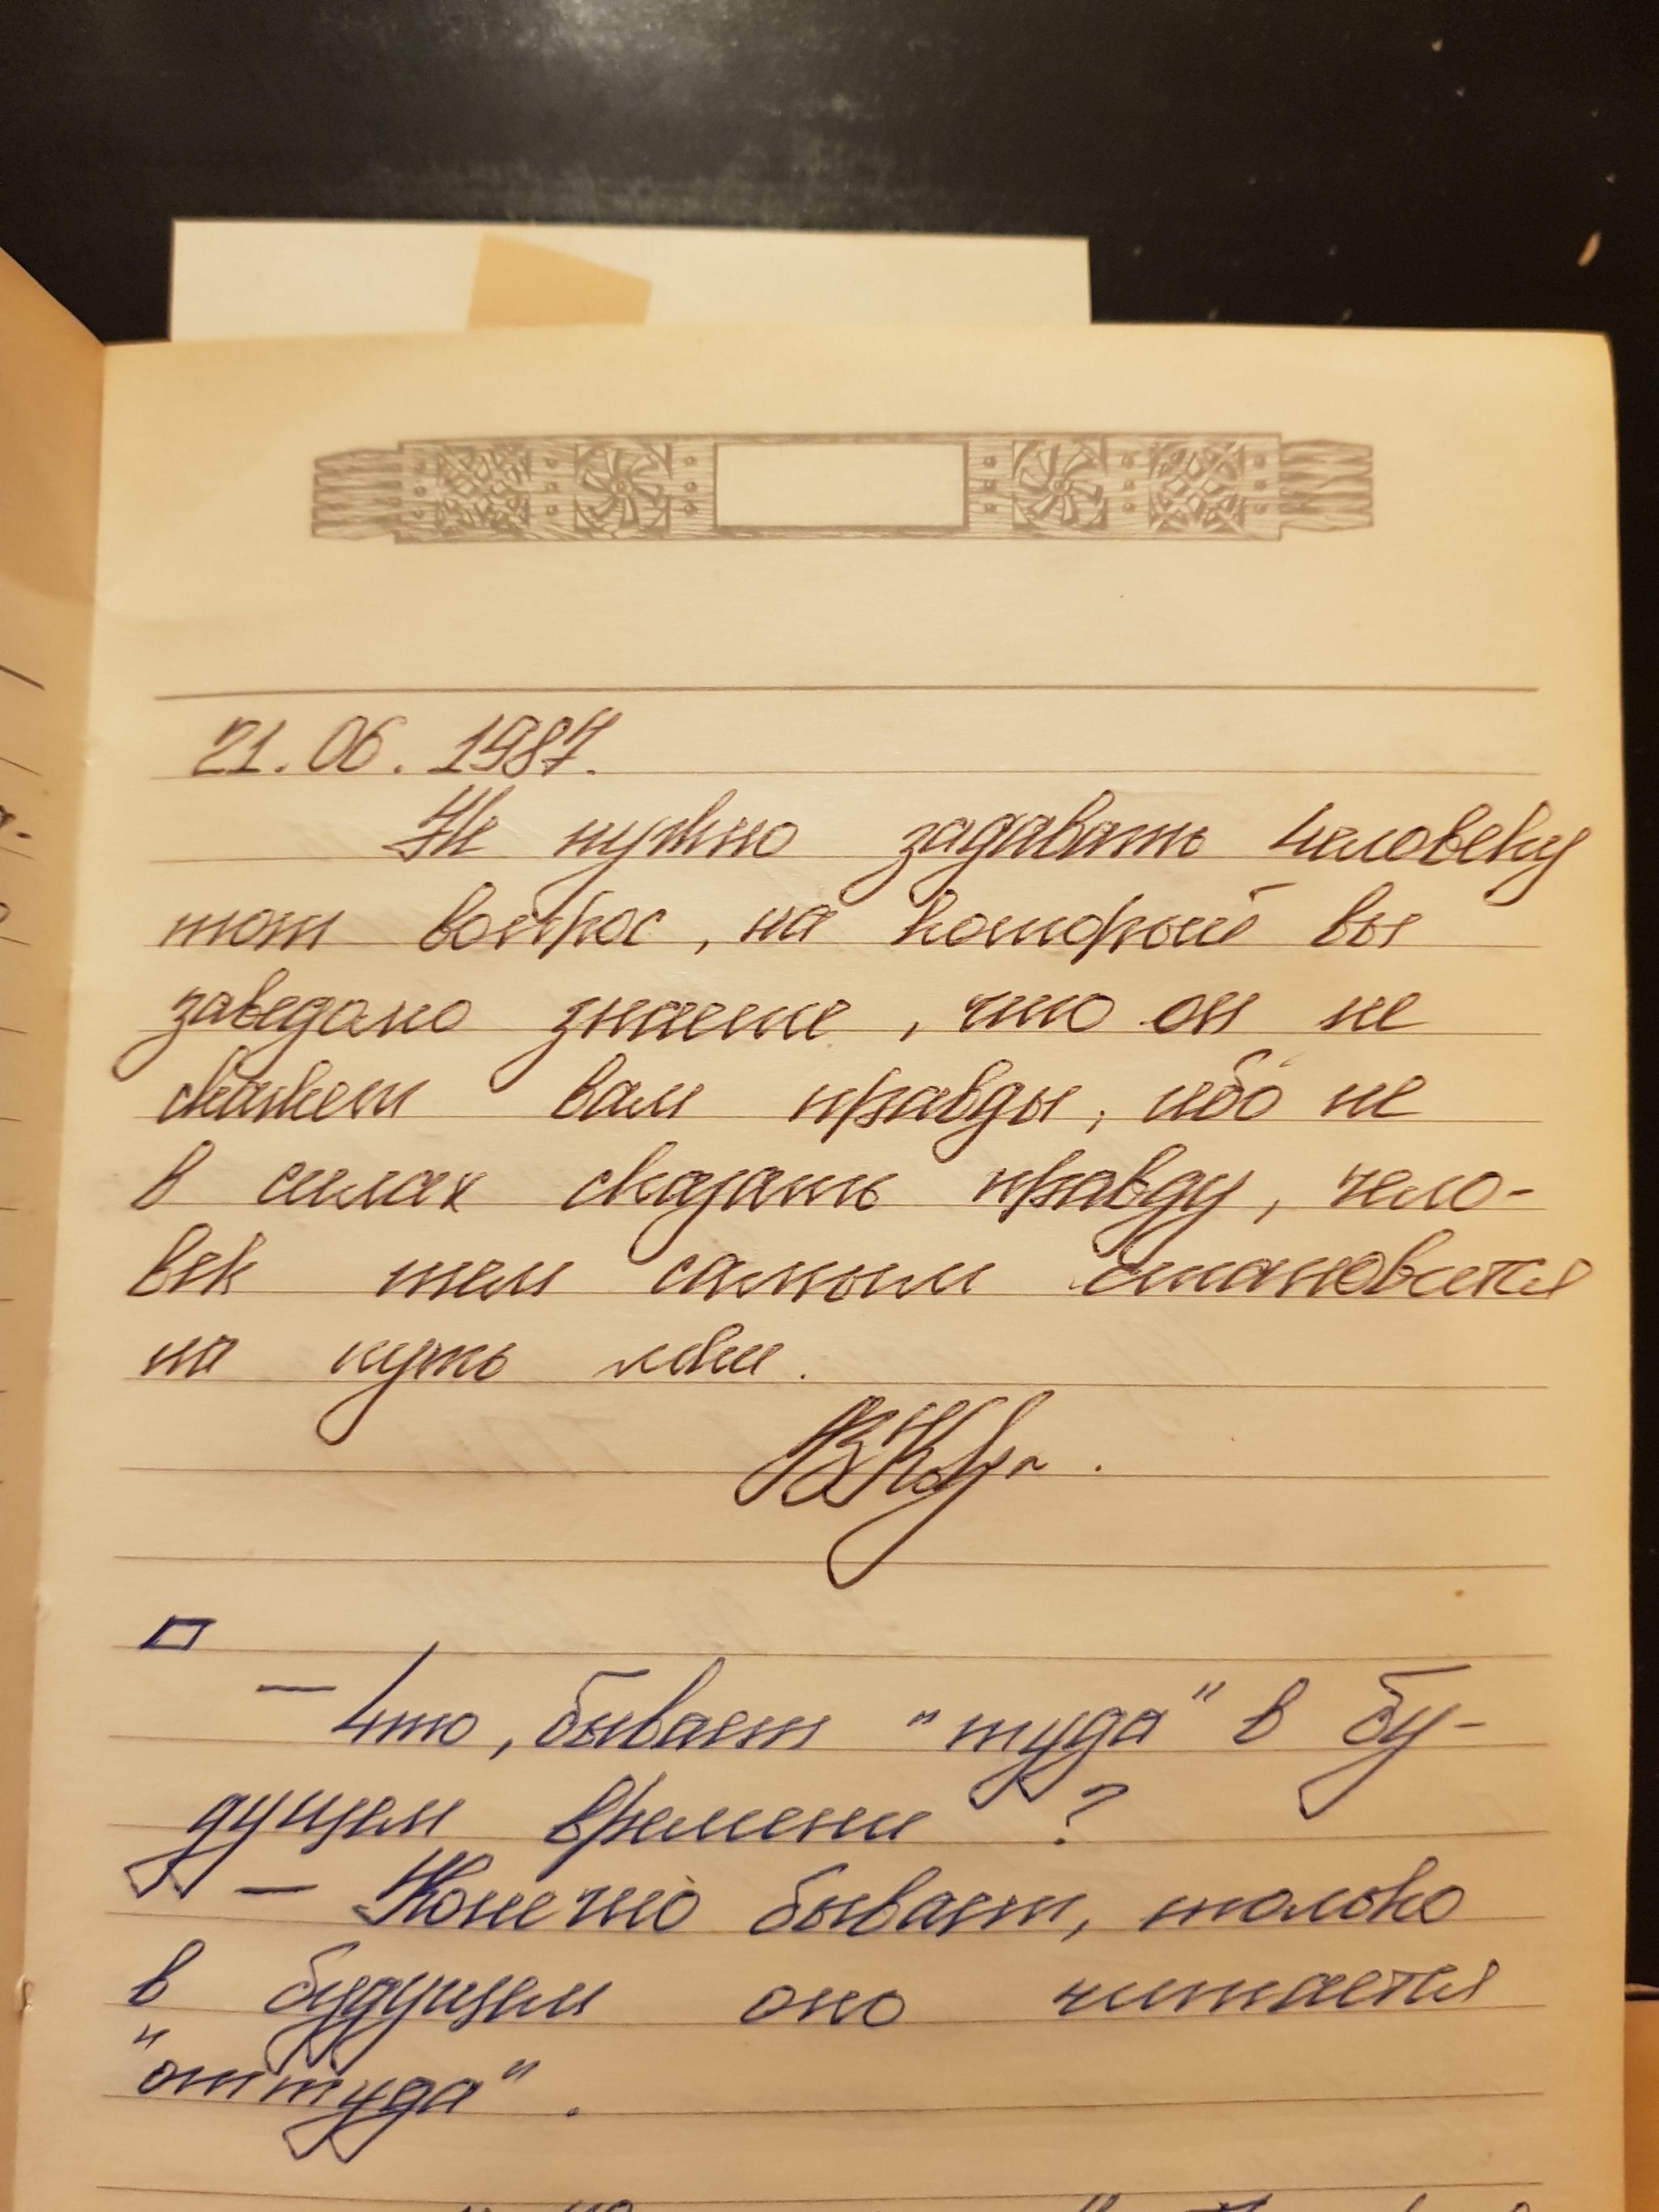 21.06.1987.
Не нужно задавать человеку
тот вопрос, на который вы
заведомо знаете, что он не
скажет вам правды, ибо не
в силах сказать правду, чело-
век тем самым становится
на путь лжи.
— Что, бывает "туда" в бу-
дущем времени?
— Конечно бывает, только
в будущем оно читается
"оттуда".